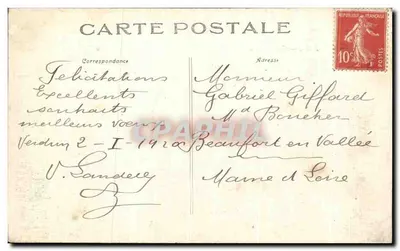 CARTE POSTALE
Correspondance
Adresse
REPUBLIQUE FRANÇAISE
10c
POSTES
Felicitations
Excellents
souhaits
meilleurs vœux
Verdun 2-I-1920
V. Landecy
Monsieur
Gabriel Giffard
Md Boucher
Beaufort en Vallée
Maine et Loire
CPARAMA